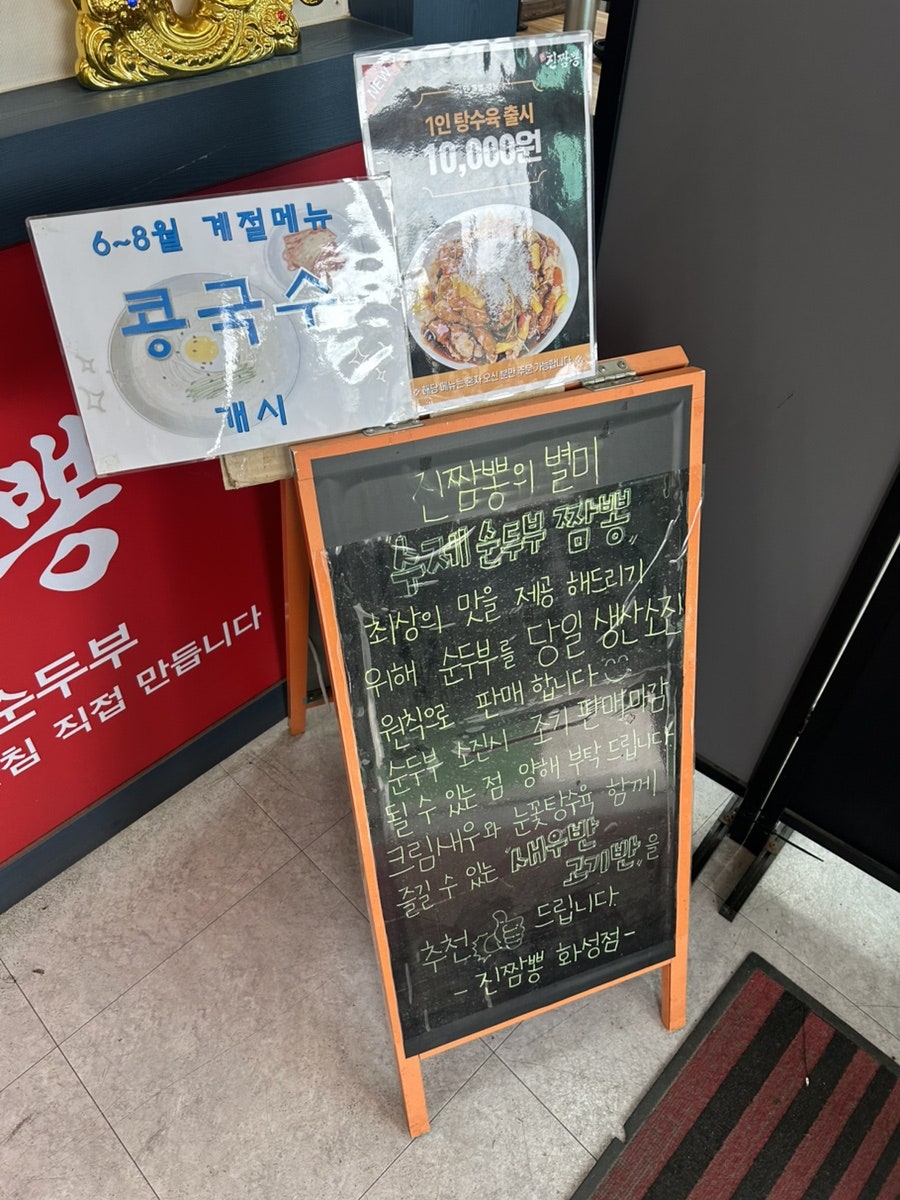 6~8월 계절메뉴
콩국수
개시
NEW
진짬뽕
1인 탕수육 출시
10,000원
※ 해당 메뉴는 혼자 오신 분만 주문 가능합니다 ※
진짬뽕위 별미
수제 순두부 짬뽕"
최상의 맛을 제공 해드리기
위해 순두부를 당일 생산소진
원칙으로 판매 합니다
순두부 소진시 조기 판매마감
될 수 있는 점 양해 부탁 드립니다.
크림새우와 눈꽃탕수육 함께
즐길 수 있는 "새우반
고기반"을
추천 드립니다.
- 진짬뽕 화성점 -
뽕
순두부
침 직접 만듭니다